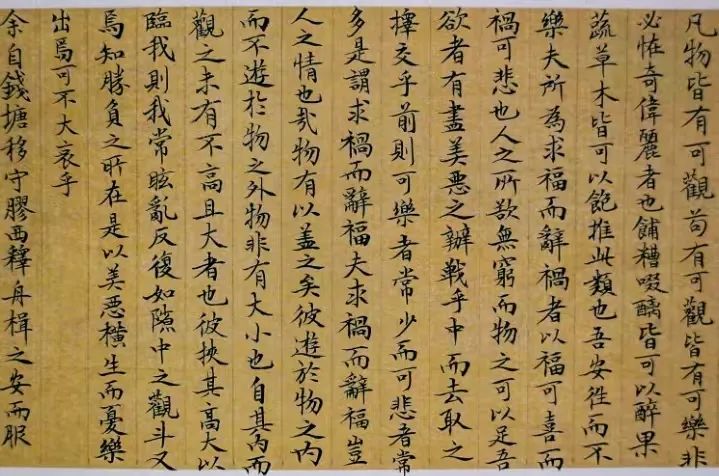 凡物皆有可觀苟有可觀皆有可樂非
必恠奇偉麗者也餔糟啜醨皆可以醉果
蔬草木皆可以飽推此類也吾安往而不
樂夫所為求福而辭禍者以福可喜而
禍可悲也人之所欲無窮而物之可以足吾
欲者有盡美惡之辨戰乎中而去取之
擇交乎前則可樂者常少而可悲者常
多是謂求禍而辭福夫求禍而辭福豈
人之情也哉物有以盖之矣彼遊於物之内
而不遊於物之外物非有大小也自其内而
觀之未有不高且大者也彼挾其高大以
臨我則我常眩亂反復如隙中之觀斗又
焉知勝負之所在是以美惡橫生而憂樂
出焉可不大哀乎
余自錢塘移守膠西釋舟楫之安而服